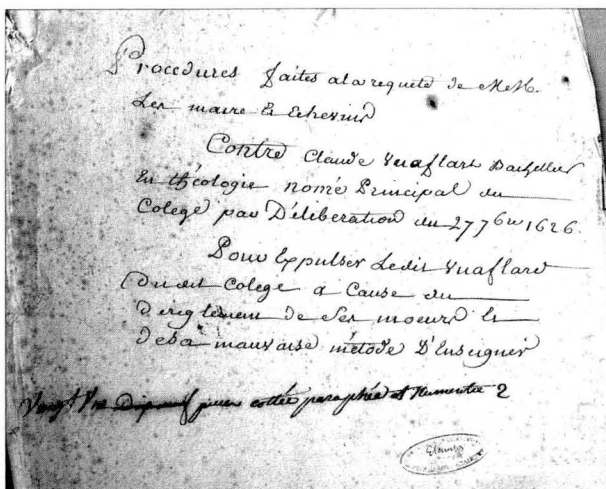 Procedures faites a la requete de MM.
Les maire et Echevins
Contre Claude Vuaflart Bachellier
En théologie nomé Principal du
Colege par Déliberation du 27 7bre 1626.
Pour Expulser Ledit Vuaflard
Dudit Colege a Cause du
dereglement de Ses moeurs et
de sa mauvaise métode D'Enseigner
Vingt pieces cottée paraphée et Numerotée 2